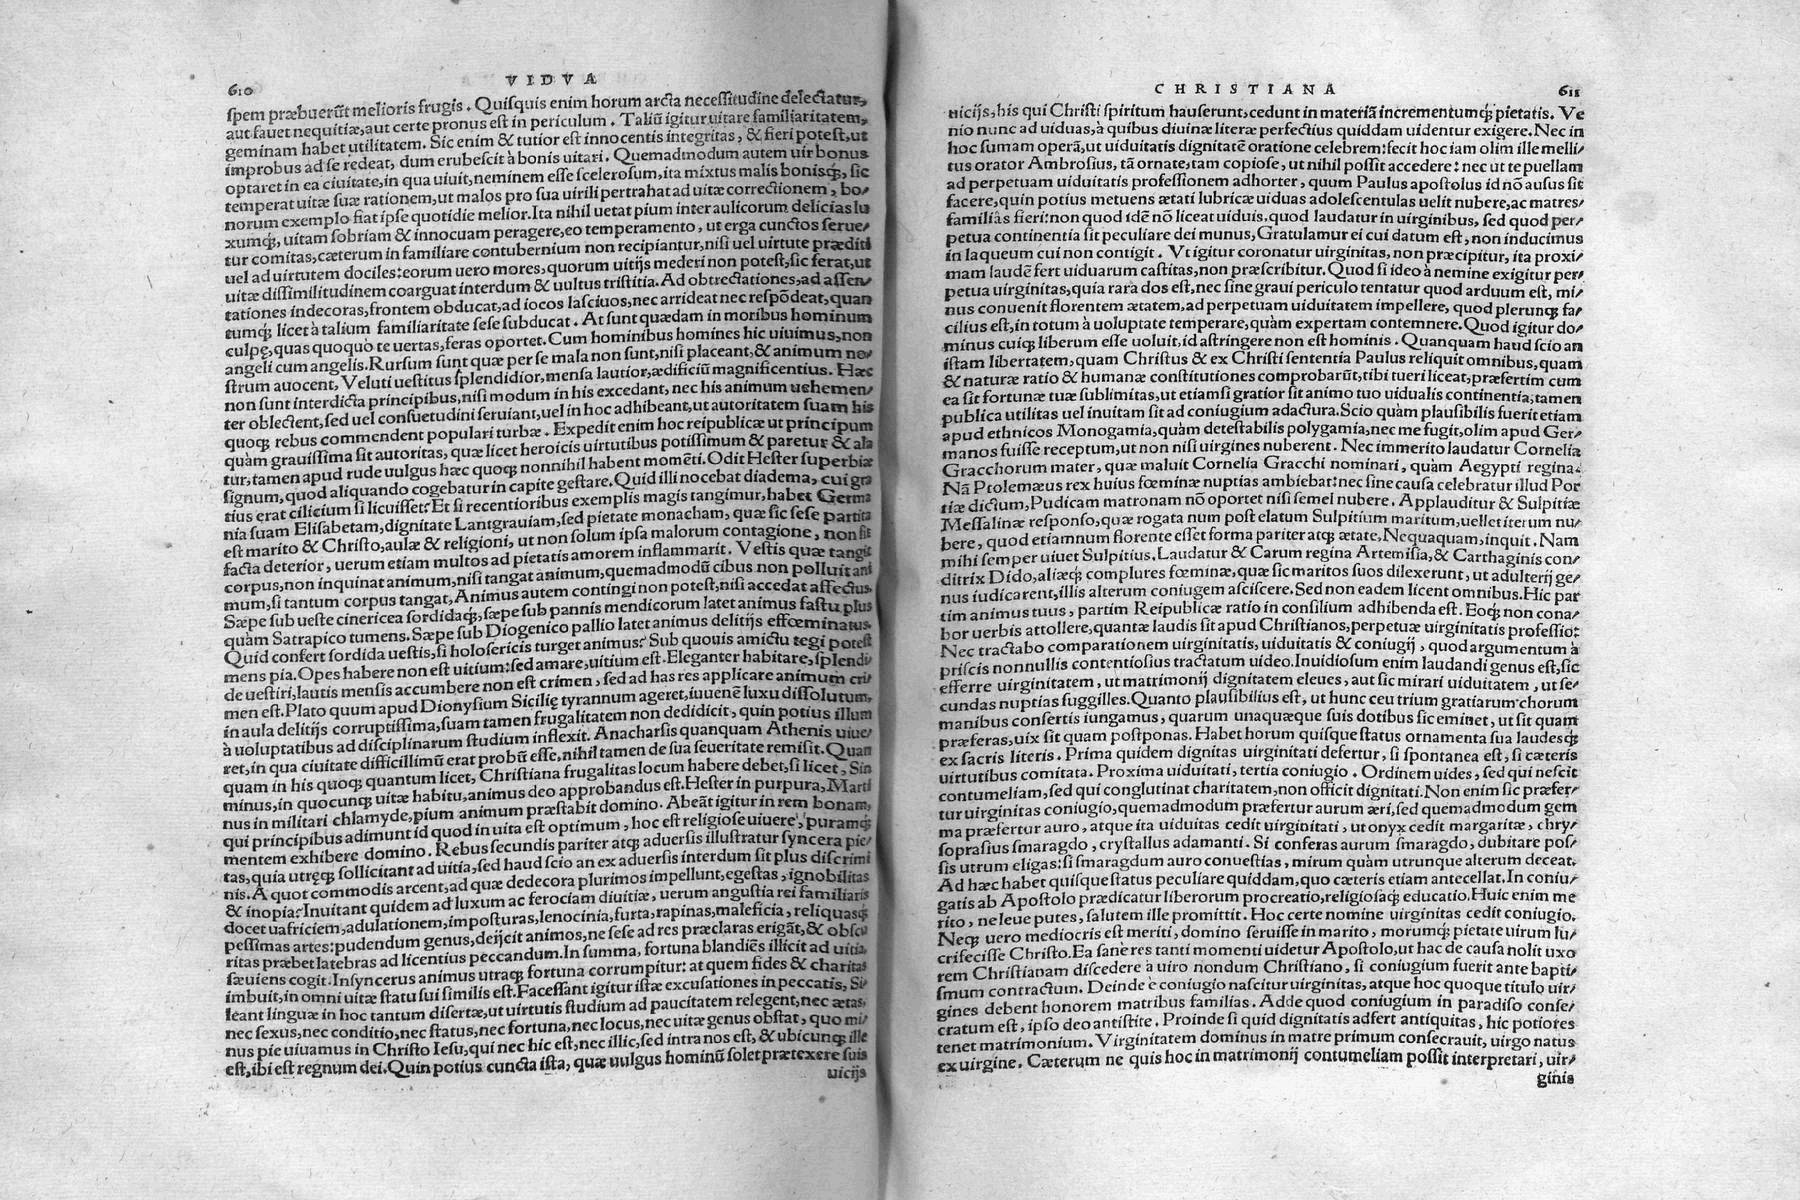 610
VIDVA
spem præbuerũt melioris frugis. Quisquis enim horum arcta necessitudine delectatur,
aut fauet nequitiæ, aut certe pronus est in periculum. Taliũ igitur uitare familiaritatem,
geminam habet utilitatem. Sic enim & tutior est innocentis integritas, & fieri potest, ut
improbus ad se redeat, dum erubescit à bonis uitari. Quemadmodum autem uir bonus
optaret in ea ciuitate, in qua uiuit, neminem esse scelerosum, ita mixtus malis bonisq́;, sic
temperat uitæ suæ rationem, ut malos pro sua uirili pertrahat ad uitæ correctionem, bo/
norum exemplo fiat ipse quotidie melior. Ita nihil uetat pium inter aulicorum delicias lu
xumq́;, uitam sobriam & innocuam peragere, eo temperamento, ut erga cunctos serue/
tur comitas, cæterum in familiare contubernium non recipiantur, nisi uel uirtute præditi
uel ad uirtutem dociles: eorum uero mores, quorum uitijs mederi non potest, sic ferat, ut
uitæ dissimilitudinem coarguat interdum & uultus tristitia. Ad obtrectationes, ad assen/
tationes indecoras, frontem obducat, ad iocos lasciuos, nec arrideat nec respõdeat, quan
tumq́; licet à talium familiaritate sese subducat. At sunt quædam in moribus hominum
culpę, quas quoquò te uertas, feras oportet. Cum hominibus homines hic uiuimus, non
angeli cum angelis. Rursum sunt quæ per se mala non sunt, nisi placeant, & animum no/
strum auocent, Veluti uestitus splendidior, mensa lautior, ædificiũ magnificentius. Hæc
non sunt interdicta principibus, nisi modum in his excedant, nec his animum uehemen/
ter oblectent, sed uel consuetudini seruiant, uel in hoc adhibeant, ut autoritatem suam his
quoq; rebus commendent populari turbæ. Expedit enim hoc reipublicæ ut principum
quàm grauissima sit autoritas, quæ licet heroicis uirtutibus potissimum & paretur & ala
tur, tamen apud rude uulgus hæc quoq; nonnihil habent momẽti. Odit Hester superbiæ
signum, quod aliquando cogebatur in capite gestare. Quid illi nocebat diadema, cui gra
tius erat cilicium si licuisset? Et si recentioribus exemplis magis tangimur, habet Germa
nia suam Elisabetam, dignitate Lantgrauiam, sed pietate monacham, quæ sic sese partita
est marito & Christo, aulæ & religioni, ut non solum ipsa malorum contagione, non sit
facta deterior, uerum etiam multos ad pietatis amorem inflammarit. Vestis quæ tangit
corpus, non inquinat animum, nisi tangat animum, quemadmodũ cibus non polluit ani
mum, si tantum corpus tangat, Animus autem contingi non potest, nisi accedat affectus.
Sæpe sub ueste cinericea sordidaq́;, sæpe sub pannis mendicorum latet animus fastu plus
quàm Satrapico tumens. Sæpe sub Diogenico pallio latet animus delitijs effœminatus.
Quid confert sordida uestis, si holosericis turget animus? Sub quouis amictu tegi potest
mens pia. Opes habere non est uitium: sed amare, uitium est. Eleganter habitare, splendi
de uestiri, lautis mensis accumbere non est crimen, sed ad has res applicare animum cri/
men est. Plato quum apud Dionysium Sicilię tyrannum ageret, iuuenẽ luxu dissolutum,
in aula delitijs corruptissima, suam tamen frugalitatem non dedidicit, quin potius illum
à uoluptatibus ad disciplinarum studium inflexit. Anacharsis quanquam Athenis uiue/
ret, in qua ciuitate difficillimũ erat probũ esse, nihil tamen de sua seueritate remisit. Quan
quam in his quoq; quantum licet, Christiana frugalitas locum habere debet, si licet, Sin
minus, in quocunq; uitæ habitu, animus deo approbandus est. Hester in purpura, Marti
nus in militari chlamyde, pium animum præstabit domino. Abeãt igitur in rem bonam,
qui principibus adimunt id quod in uita est optimum, hoc est religiose uiuere, puramq́;
mentem exhibere domino. Rebus secundis pariter atq; aduersis illustratur syncera pie/
tas, quia utręq; sollicitant ad uitia, sed haud scio an ex aduersis interdum sit plus discrimi
nis. A quot commodis arcent, ad quæ dedecora plurimos impellunt, egestas, ignobilitas
& inopia? Inuitant quidem ad luxum ac ferociam diuitiæ, uerum angustia rei familiaris
docet uafriciem, adulationem, imposturas, lenocinia, furta, rapinas, maleficia, reliquasq́;
pessimas artes: pudendum genus, deijcit animos, ne sese ad res præclaras erigãt, & obscu
ritas præbet latebras ad licentius peccandum. In summa, fortuna blandiẽs illicit ad uitia,
sæuiens cogit. Insyncerus animus utraq; fortuna corrumpitur: at quem fides & charitas
imbuit, in omni uitæ statu sui similis est. Facessant igitur istæ excusationes in peccatis, Si
leant linguæ in hoc tantum disertæ, ut uirtutis studium ad paucitatem relegent, nec ætas,
nec sexus, nec conditio, nec status, nec fortuna, nec locus, nec uitæ genus obstat, quo mi/
nus pie uiuamus in Christo Iesu, qui nec hic est, nec illic, sed intra nos est, & ubicunq; ille
est, ibi est regnum dei. Quin potius cuncta ista, quæ uulgus hominũ solet prætexere suis
uicijs
CHRISTIANA
611
uicijs, his qui Christi spiritum hauserunt, cedunt in materiã incrementumq́; pietatis. Ve
nio nunc ad uiduas, à quibus diuinæ literæ perfectius quiddam uidentur exigere. Nec in
hoc sumam operã, ut uiduitatis dignitatẽ oratione celebrem: fecit hoc iam olim ille melli/
tus orator Ambrosius, tã ornate, tam copiose, ut nihil possit accedere: nec ut te puellam
ad perpetuam uiduitatis professionem adhorter, quum Paulus apostolus id nõ ausus sit
facere, quin potius metuens ætati lubricæ uiduas adolescentulas uelit nubere, ac matres/
familiâs fieri: non quod idẽ nõ liceat uiduis, quod laudatur in uirginibus, sed quod per/
petua continentia sit peculiare dei munus, Gratulamur ei cui datum est, non inducimus
in laqueum cui non contigit. Vt igitur coronatur uirginitas, non præcipitur, ita proxi/
mam laudẽ fert uiduarum castitas, non præscribitur. Quod si ideo à nemine exigitur per/
petua uirginitas, quia rara dos est, nec sine graui periculo tentatur quod arduum est, mi/
nus conuenit florentem ætatem, ad perpetuam uiduitatem impellere, quod plerunq; fa/
cilius est, in totum à uoluptate temperare, quàm expertam contemnere. Quod igitur do/
minus cuiq; liberum esse uoluit, id astringere non est hominis. Quanquam haud scio an
istam libertatem, quam Christus & ex Christi sententia Paulus reliquit omnibus, quam
& naturæ ratio & humanæ constitutiones comprobarũt, tibi tueri liceat, præsertim cum
ea sit fortunæ tuæ sublimitas, ut etiamsi gratior sit animo tuo uidualis continentia, tamen
publica utilitas uel inuitam sit ad coniugium adactura. Scio quàm plausibilis fuerit etiam
apud ethnicos Monogamia, quàm detestabilis polygamia, nec me fugit, olim apud Ger/
manos fuisse receptum, ut non nisi uirgines nuberent. Nec immerito laudatur Cornelia
Gracchorum mater, quæ maluit Cornelia Gracchi nominari, quàm Aegypti regina.
Nã Ptolemæus rex huius fœminæ nuptias ambiebat: nec sine causa celebratur illud Por
tiæ dictum, Pudicam matronam nõ oportet nisi semel nubere. Applauditur & Sulpitiæ
Messalinæ responso, quæ rogata num post elatum Sulpitium maritum, uellet iterum nu/
bere, quod etiamnum florente esset forma pariter atq; ætate, Nequaquam, inquit. Nam
mihi semper uiuet Sulpitius. Laudatur & Carum regina Artemisia, & Carthaginis con/
ditrix Dido, aliæq́; complures fœminæ, quæ sic maritos suos dilexerunt, ut adulterij ge/
nus iudicarent, illis alterum coniugem asciscere. Sed non eadem licent omnibus. Hic par
tim animus tuus, partim Reipublicæ ratio in consilium adhibenda est. Eoq́; non cona/
bor uerbis attollere, quantæ laudis sit apud Christianos, perpetuæ uirginitatis professio:
Nec tractabo comparationem uirginitatis, uiduitatis & coniugij, quod argumentum à
priscis nonnullis contentiosius tractatum uideo. Inuidiosum enim laudandi genus est, sic
efferre uirginitatem, ut matrimonij dignitatem eleues, aut sic mirari uiduitatem, ut se/
cundas nuptias suggilles. Quanto plausibilius est, ut hunc ceu trium gratiarum chorum
manibus consertis iungamus, quarum unaquæque suis dotibus sic eminet, ut sit quam
præferas, uix sit quam postponas. Habet horum quisque status ornamenta sua laudesq́;
ex sacris literis. Prima quidem dignitas uirginitati defertur, si spontanea est, si cæteris
uirtutibus comitata. Proxima uiduitati, tertia coniugio. Ordinem uides, sed qui nescit
contumeliam, sed qui conglutinat charitatem, non officit dignitati. Non enim sic præfer/
tur uirginitas coniugio, quemadmodum præfertur aurum æri, sed quemadmodum gem
ma præfertur auro, atque ita uiduitas cedit uirginitati, ut onyx cedit margaritæ, chry/
soprasius smaragdo, crystallus adamanti. Si conferas aurum smaragdo, dubitare pos/
sis utrum eligas: si smaragdum auro conuestias, mirum quàm utrunque alterum deceat.
Ad hæc habet quisque status peculiare quiddam, quo cæteris etiam antecellat. In coniu/
gatis ab Apostolo prædicatur liberorum procreatio, religiosaq́; educatio. Huic enim me
rito, ne leue putes, salutem ille promittit. Hoc certe nomine uirginitas cedit coniugio.
Neq; uero mediocris est meriti, domino seruisse in marito, morumq́; pietate uirum lu/
crifecisse Christo. Ea sanè res tanti momenti uidetur Apostolo, ut hac de causa nolit uxo
rem Christianam discedere à uiro nondum Christiano, si coniugium fuerit ante bapti/
smum contractum. Deinde è coniugio nascitur uirginitas, atque hoc quoque titulo uir/
gines debent honorem matribus familias. Adde quod coniugium in paradiso conse/
cratum est, ipso deo antistite. Proinde si quid dignitatis adfert antiquitas, hic potiores
tenet matrimonium. Virginitatem dominus in matre primum consecrauit, uirgo natus
ex uirgine. Cæterum ne quis hoc in matrimonij contumeliam possit interpretari, uir/
ginis